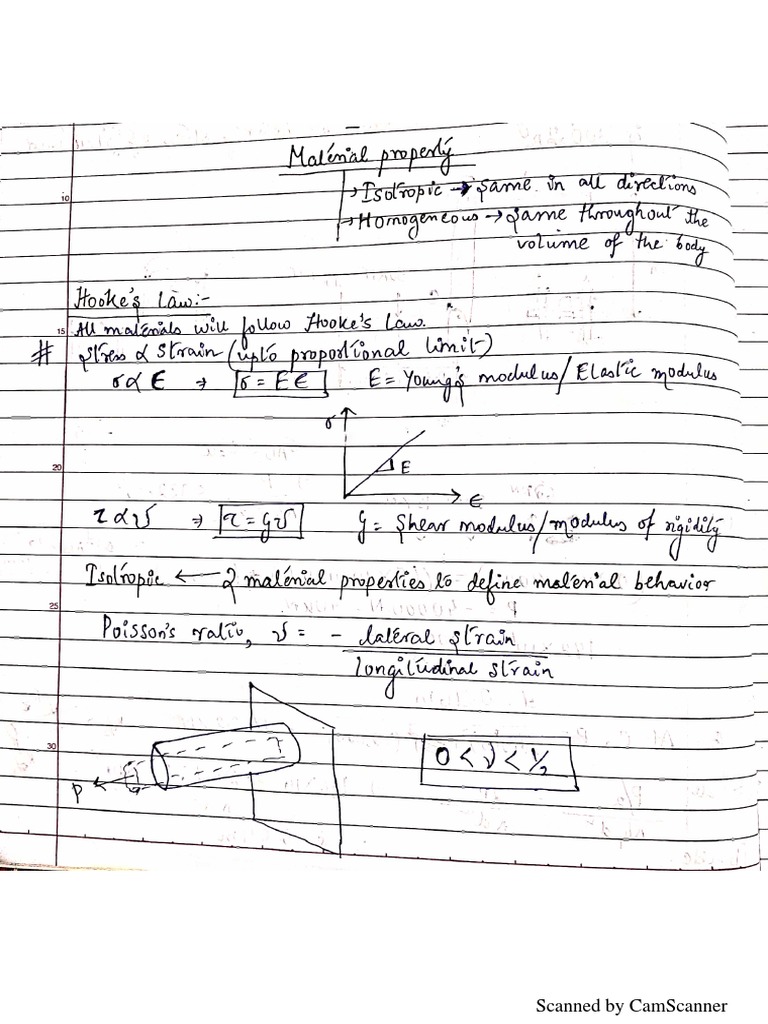 Material property
10
→ Isotropic → same in all directions
→ Homogeneous → same throughout the
volume of the body
Hooke's Law:-
15 All materials will follow Hooke's Law.
# Stress ∝ Strain (upto proportional limit)
σ ∝ ϵ ⇒ σ = Eϵ E = Young's modulus/Elastic modulus
σ
20
E
ϵ
τ ∝ γ ⇒ τ = Gγ G = Shear modulus/modulus of rigidity
Isotropic ← 2 material properties to define material behavior
25
Poisson's ratio, ν = - lateral strain
longitudinal strain
30
0 < ν < 1/2
P
Scanned by CamScanner